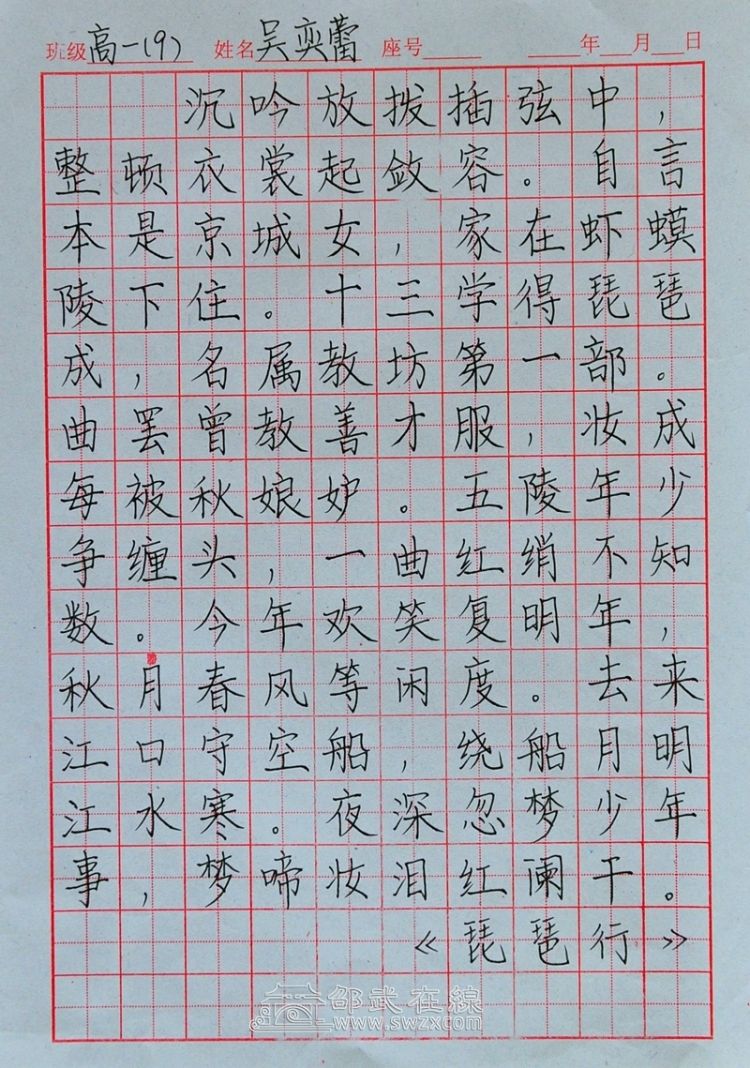 班级高一(9) 姓名吴奕蕾 座号 年 月 日
沉吟放拨插弦中，
整顿衣裳起敛容。自言
本是京城女，家在虾蟆
陵下住。十三学得琵琶
成，名属教坊第一部。
曲罢曾教善才服，妆成
每被秋娘妒。五陵年少
争缠头，一曲红绡不知
数。今年欢笑复明年，
秋月春风等闲度。去来
江口守空船，绕船月明
江水寒。夜深忽梦少年
事，梦啼妆泪红阑干。
《琵琶行》
邵武在線
www.swzx.com